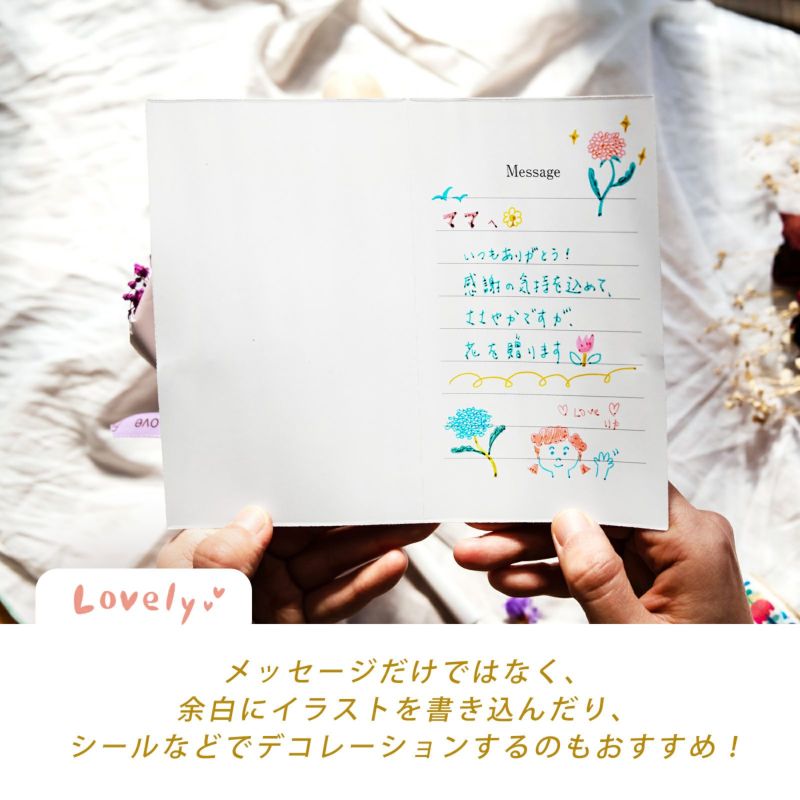 Message
ててへ
いつもありがとう!
感謝の気持を込めて、
ささやかですが、
花を贈ります
Love
りか
Love
Lovely
メッセージだけではなく、
余白にイラストを書き込んだり、
シールなどでデコレーションするのもおすすめ!